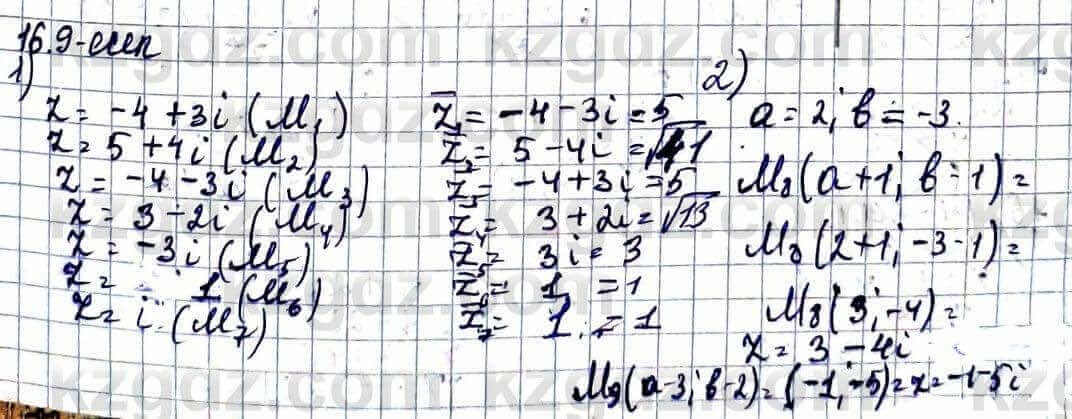 16.9-есеп
1)
z = -4 + 3i (M₁)
z = 5 + 4i (M₂)
z = -4 - 3i (M₃)
z = 3 - 2i (M₄)
z = -3i (M₅)
z = 1 (M₆)
z = i (M₇)
z̄₁ = -4 - 3i = 5
z̄₂ = 5 - 4i = √41
z̄₃ = -4 + 3i = 5
z̄₄ = 3 + 2i = √13
z̄₅ = 3i = 3
z̄₆ = 1 = 1
z̄₇ = 1 = 1
2)
a = 2; b = -3.
M₈(a+1; b-1) =
M₈(2+1; -3-1) =
M₈(3; -4) =
z = 3 - 4i
M₉(a-3; b-2) = (-1; -5) = z = -1-5i
kzgdz.com